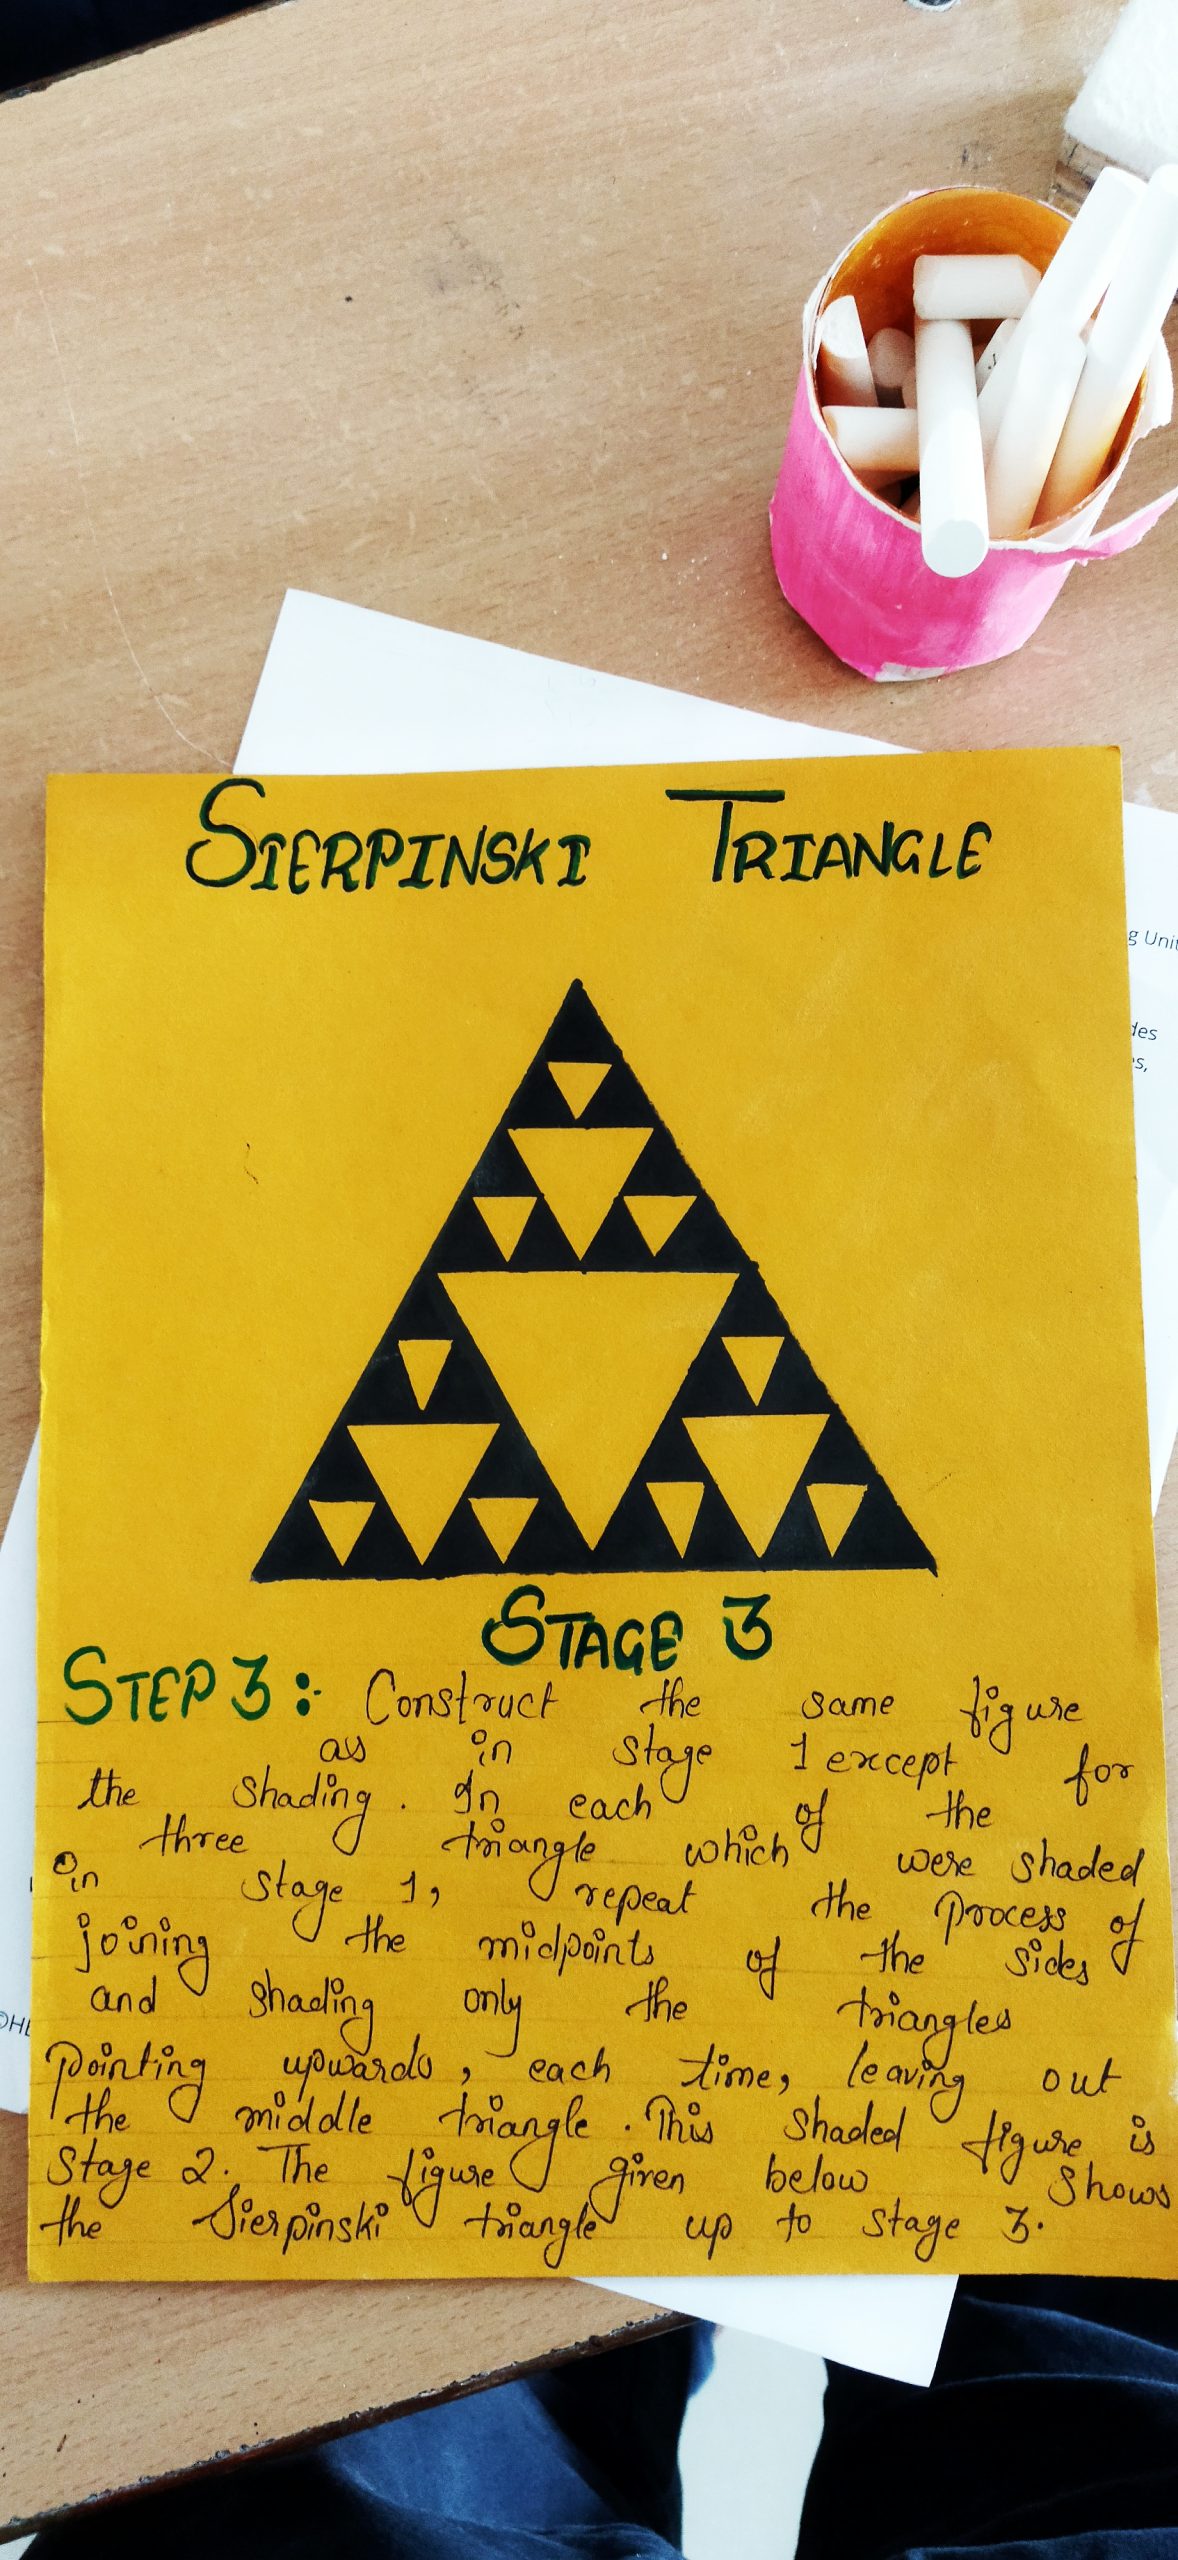 SIERPINSKI TRIANGLE
g Unit
des
s,
STAGE 3
STEP 3 :- Construct the same figure
as in stage 1 except for
the shading. In each of the
three triangle which were shaded
in stage 1, repeat the process of
joining the midpoints of the sides
and shading only the triangles
pointing upwards, each time, leaving out
the middle triangle. This shaded figure is
stage 2. The figure given below shows
the Sierpinski triangle up to stage 3.